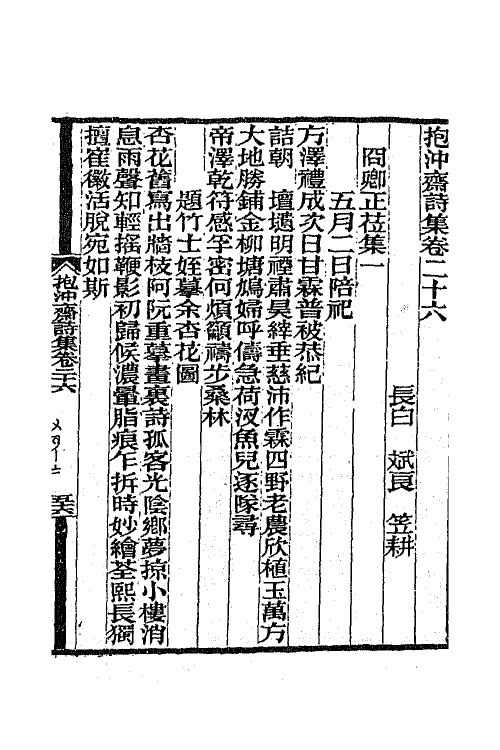 抱沖齋詩集卷二十六
長白　斌良　笠耕
冏卿正莅集一
五月二日陪祀
方澤禮成次日甘霖普被恭紀
詰朝　壇壝明禋肅昊縡垂慈沛作霖四野老農欣植玉萬方
大地勝鋪金柳塘鳩婦呼儔急荷汊魚兒逐隊尋
帝澤乾符感孚密何煩籲禱步桑林
題竹士姪摹余杏花圖
杏花舊寫出牆枝阿阮重摹畫裏詩孤客光陰鄉夢掠小樓消
息雨聲知輕搖鞭影初歸候濃暈脂痕乍拆時妙繪荃熙長獨
擅崔徽活脫宛如斯
抱沖齋詩集卷二十六